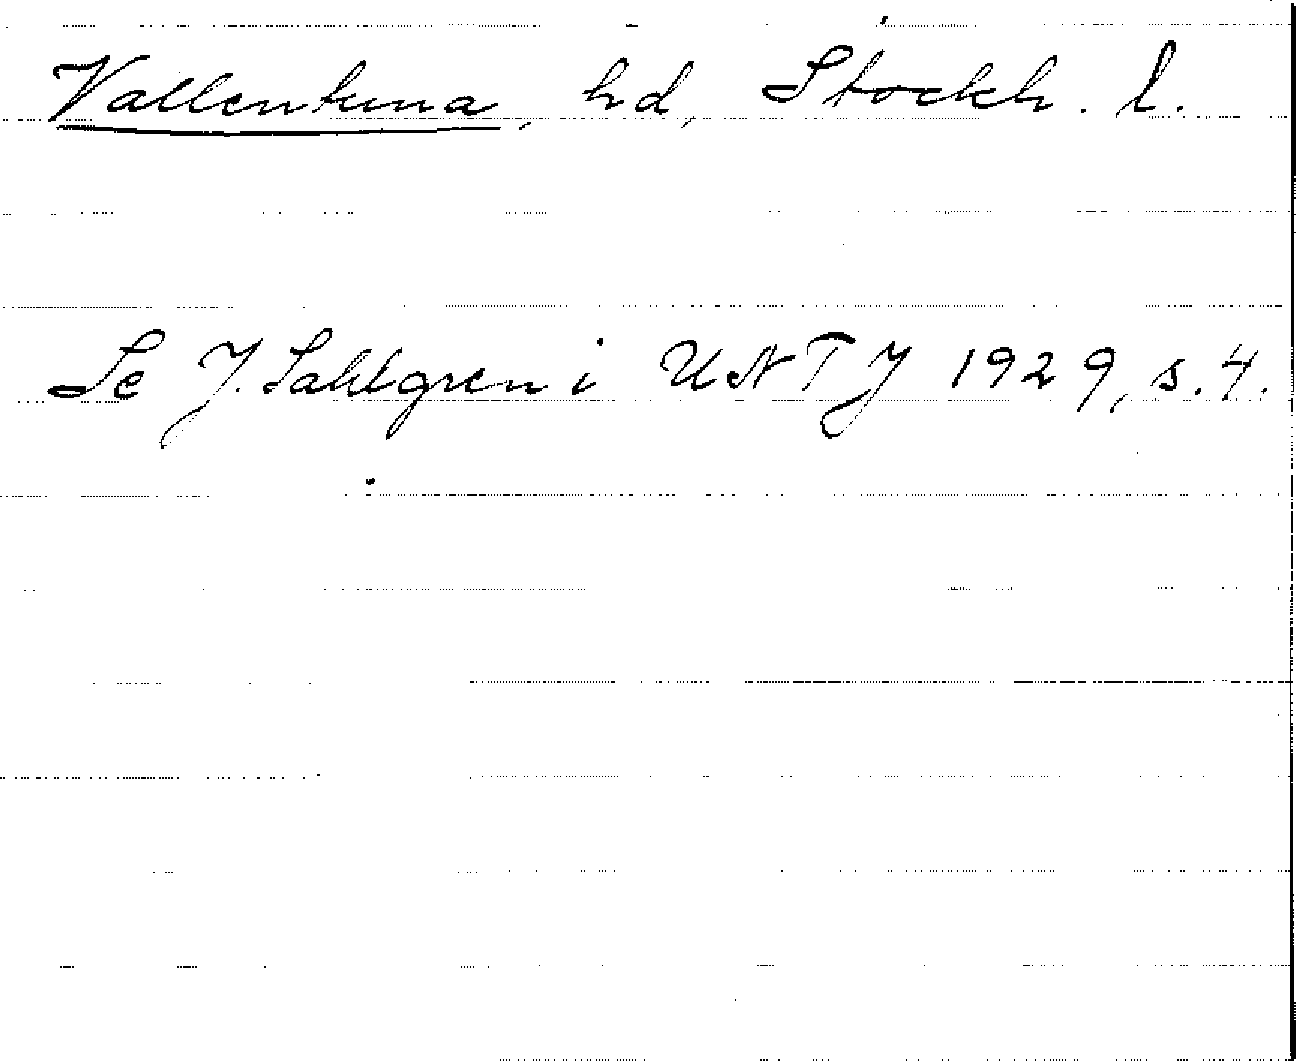 Vallentuna, hd, Stockh. l.
Se J. Sahlgren i UNTJ 1929, s. 4.